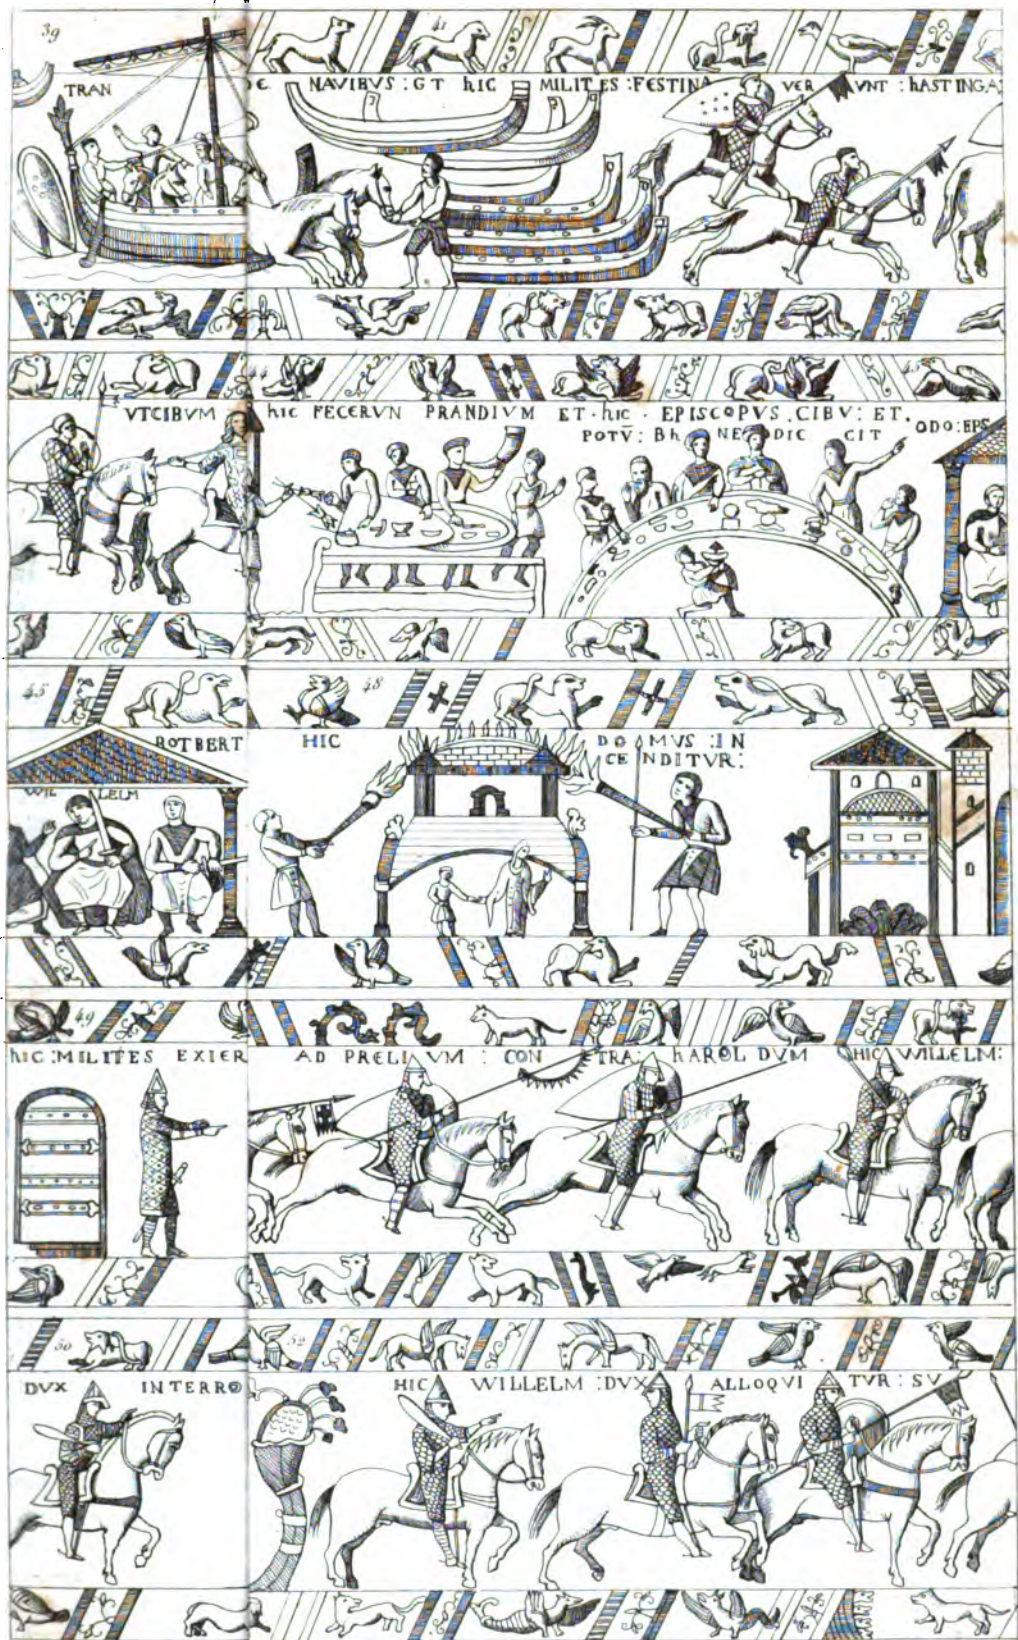 39 41
TRAN DE NAVIBVS : GT hIC MILITES : FESTINA VER VNT : hASTINGA
44 45
VTCIBVM hIC FECERVN PRANDIVM ET · hIC · EPISCOPVS . CIBV : ET .
POTV̄ : Bh NE DIC CIT ODO : EPS
45 48
ROTBERT HIC DO MVS : IN
CE NDITVR :
WIL LELM
49
hIC : MILITES EXIER AD PRELI VM : CON TRA : hAROL DVM HIC WILLELM :
50 52
DVX INTERRO HIC WILLELM : DVX ALLOQVI TVR : SV